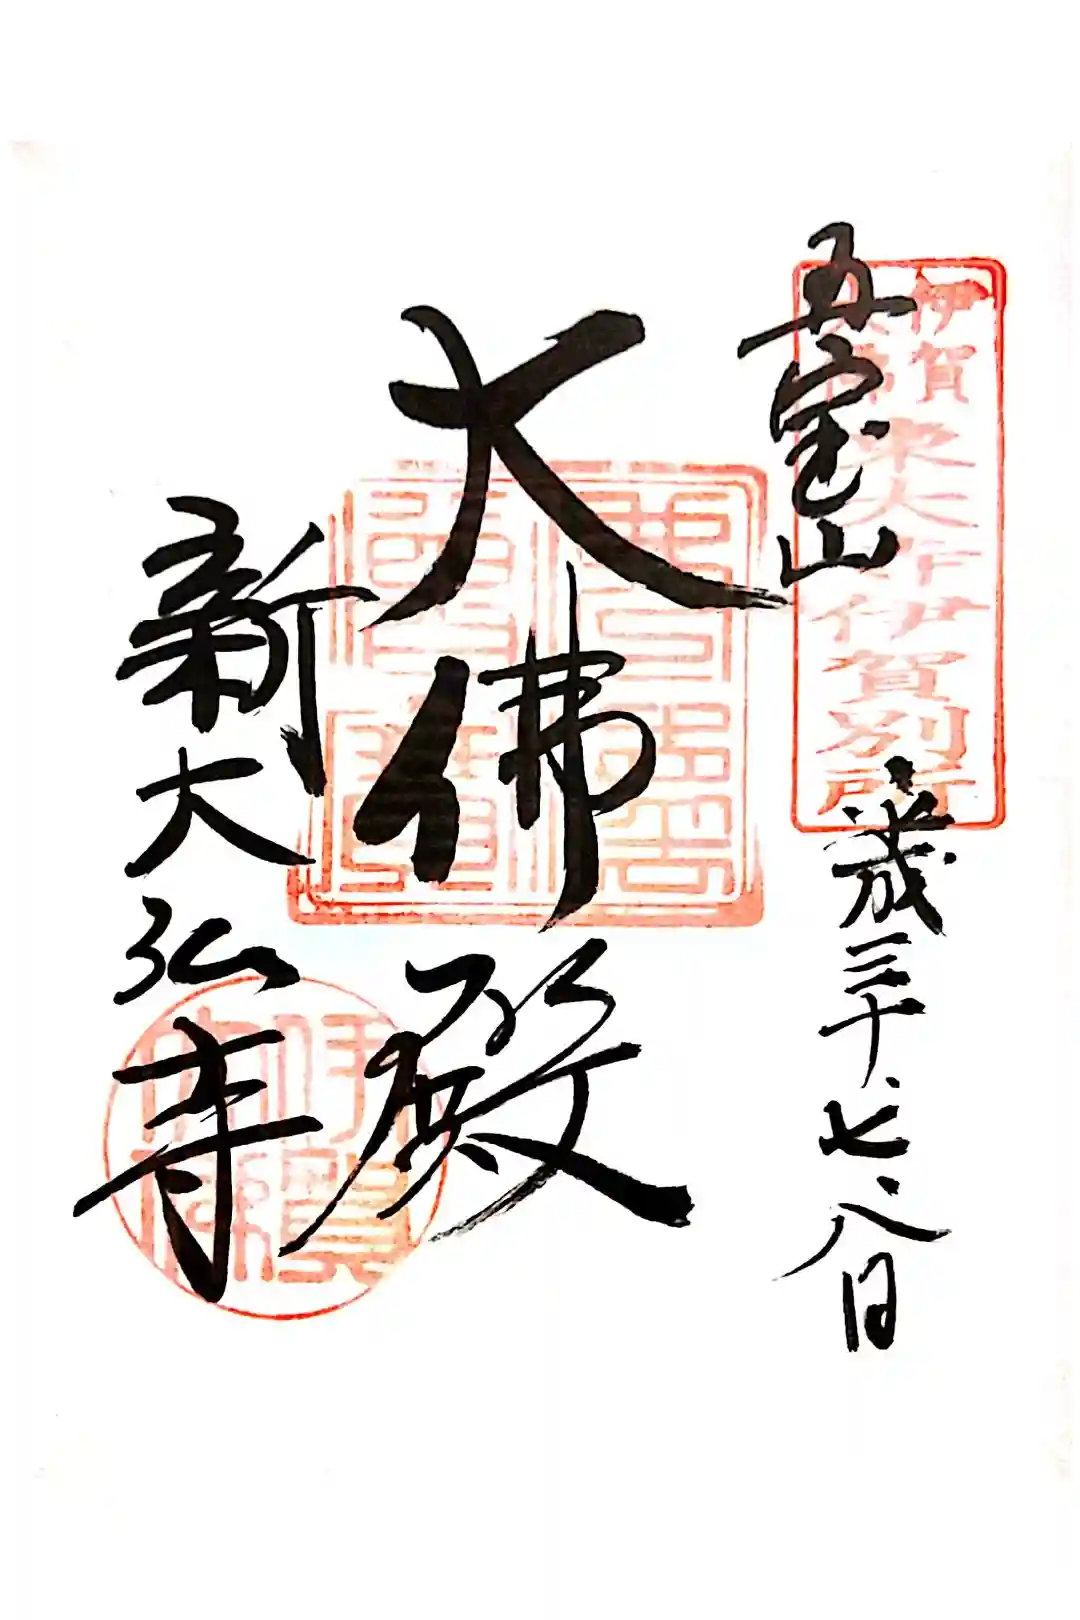 五宝山
伊賀
大佛
東大寺伊賀別所
平成三十、七、八日
大佛殿
新大仏寺
伊賀
大佛